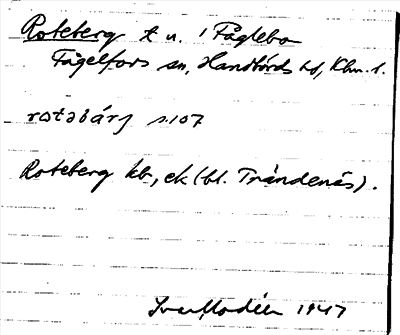 Roteberg t u. i Fåglebo
Fågelfors sn, Handbörds hd, Klm. l.
rotəbárj s. 107
Roteberg kb, ek (bl. Trändenäs).
1947